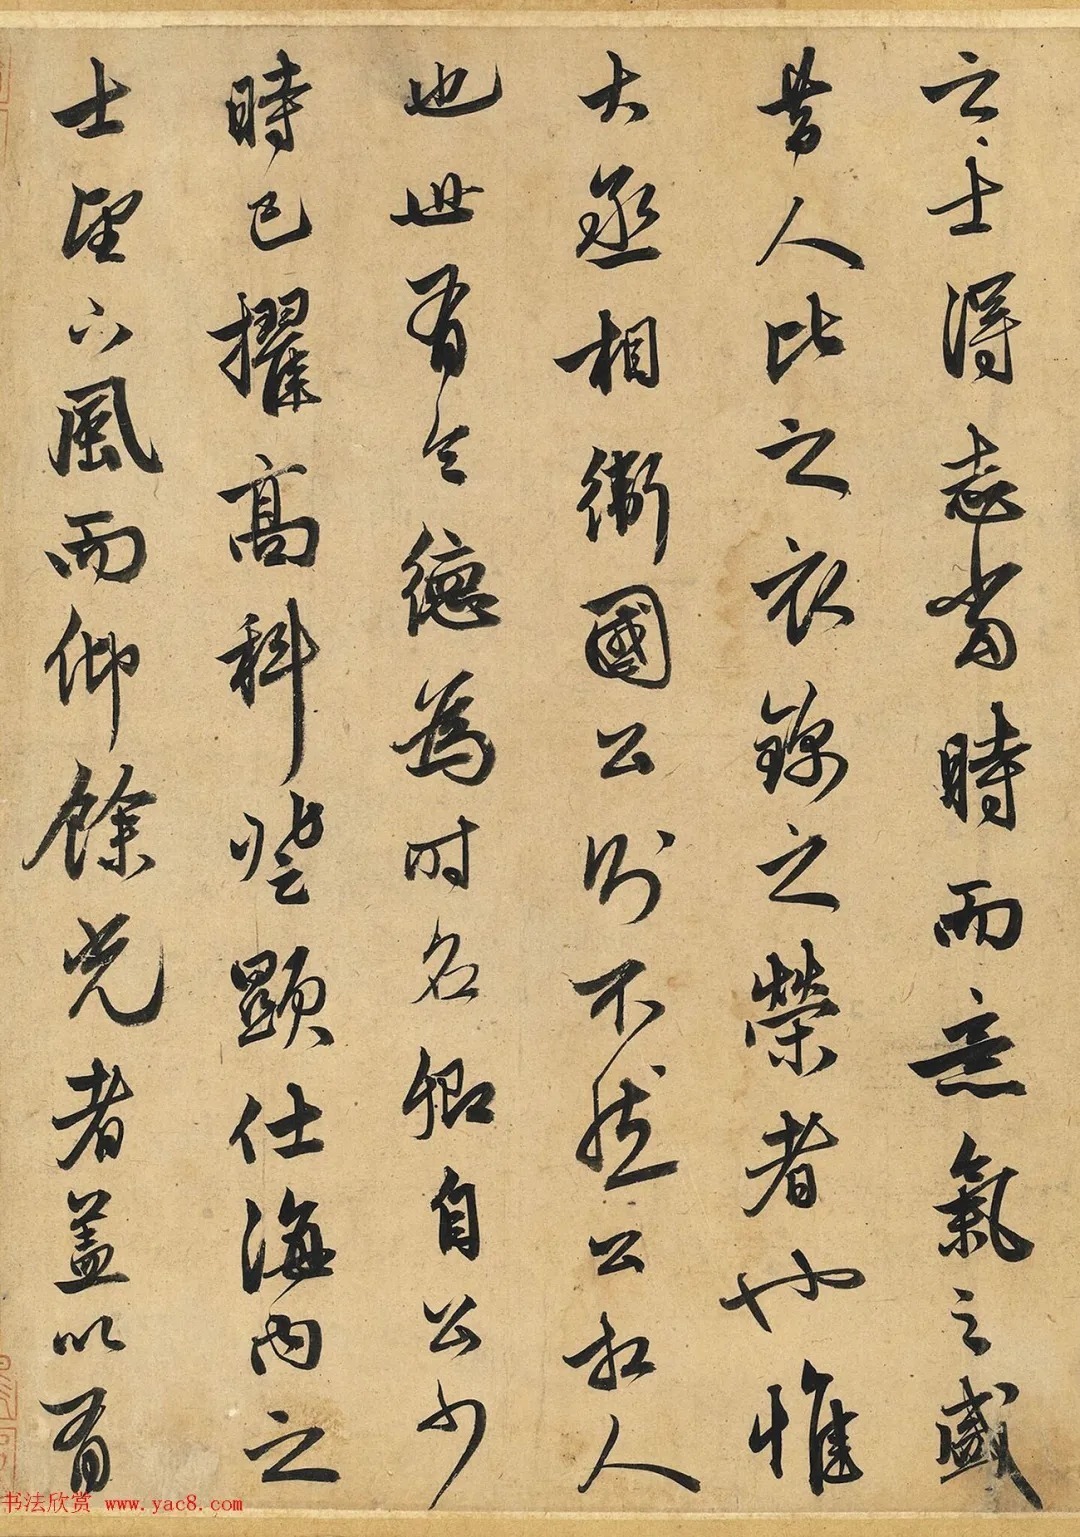 之士得志当時而意氣之盛
昔人比之衣錦之榮者也惟
大丞相衛國公則不然公相人
也世有令德為时名卿自公少
時已擢高科登顯仕海内之
士望下風而仰餘光者蓋以有
书法欣赏 www.yac8.com